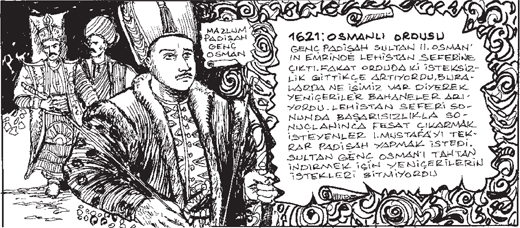 MAZLUM
PADİŞAH
GENÇ
OSMAN
1621: OSMANLI ORDUSU
GENÇ PADİŞAH SULTAN II. OSMAN'
IN EMRİNDE LEHİSTAN SEFERİNE
ÇIKTI. FAKAT ORDUDAKİ İSTEKSİZ-
LİK GİTTİKÇE ARTIYORDU. BURA-
LARDA NE İŞİMİZ VAR DİYEREK
YENİÇERİLER BAHANELER ARI-
YORDU. LEHİSTAN SEFERİ SO-
NUNDA BAŞARISIZLIKLA SO-
NUÇLANINCA FESAT ÇIKARMAK
İSTEYENLER I. MUSTAFA'YI TEK-
RAR PADİŞAH YAPMAK İSTEDİ.
SULTAN GENÇ OSMAN'I TAHTAN
İNDİRMEK İÇİN YENİÇERİLERİN
İSTEKLERİ BİTMİYORDU